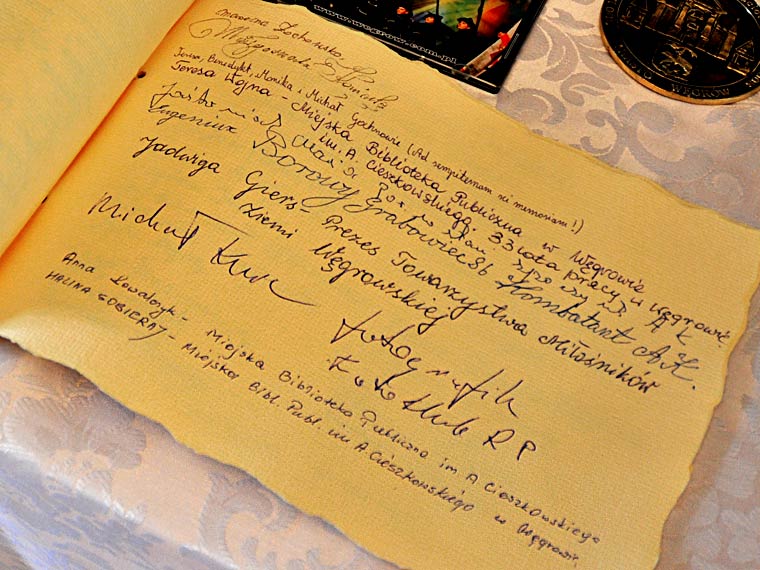 www.wegrow.com.pl
WĘGRÓW
Marzena Żochowska
Małgorzata
Teresa, Benedykt, Monika i Michał Gochnowie (Ad sempiternam rei memoriam!)
Teresa Wojna - Miejska Biblioteka Publiczna w Węgrowie
im. A. Cieszkowskiego. 33 lata pracy w Węgrowie
A K
Eugeniusz Borowy Grabowiec 86 Kombatant A.K.
Jadwiga Giers - Prezes Towarzystwa Miłośników
Ziemi Węgrowskiej
Michał Kurc fotografik
Fotoklub RP
Anna Kowalczyk - Miejska Biblioteka Publiczna im A Cieszkowskiego
HALINA SOBIERAJ - Miejska Bibl. Publ. im A. Cieszkowskiego w Węgrowie